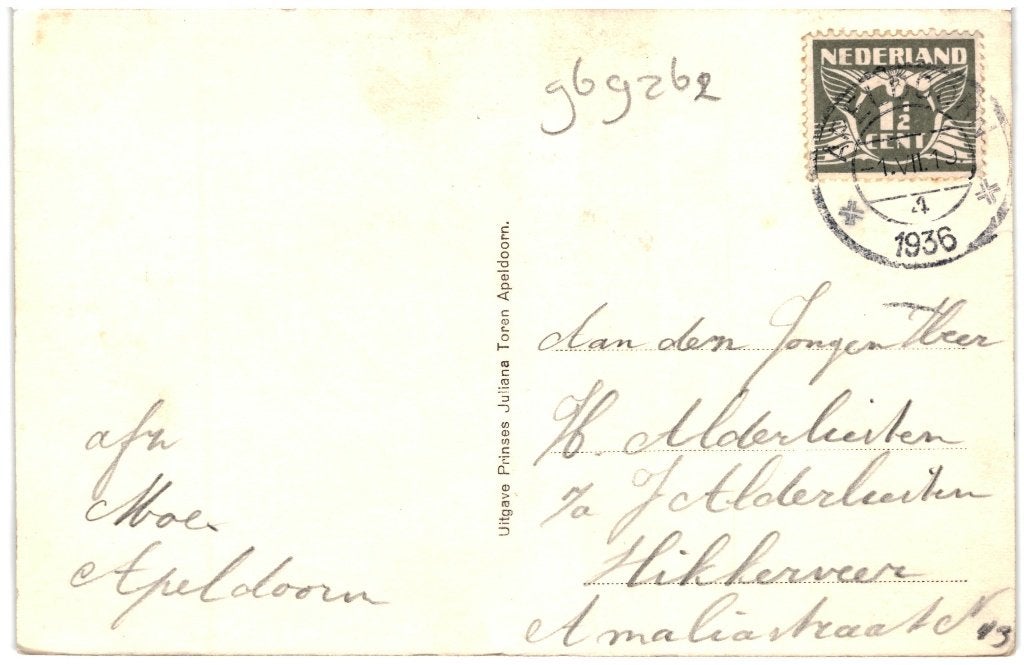 gbgzbz
NEDERLAND
1½
CENT
-1.VII.19
4
1936
Uitgave Prinses Juliana Toren Apeldoorn.
Aan den Jongen Heer
H. Alderliesten
J Alderliesten
Amaliastraat N 43
afz
Moe
Apeldoorn